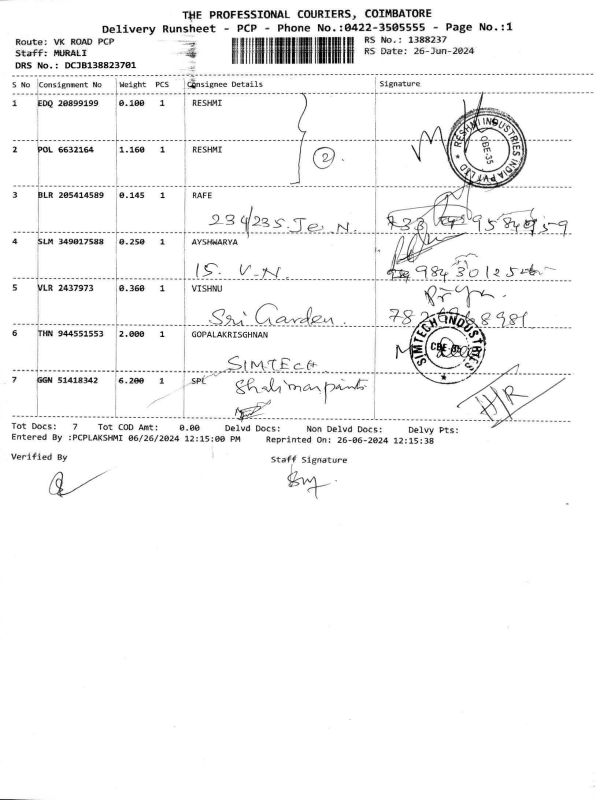 THE PROFESSIONAL COURIERS, COIMBATORE
Delivery Runsheet - PCP - Phone No.:0422-3505555 - Page No.:1
Route: VK ROAD PCP
Staff: MURALI
DRS No.: DCJB138823701
RS No.: 1388237
RS Date: 26-Jun-2024
S No Consignment No Weight PCS Consignee Details Signature
1 EDQ 20899199 0.100 1 RESHMI
RESHMI INDUSTRIES INDIA PVT LTD CBE-35
2 POL 6632164 1.160 1 RESHMI
2
3 BLR 205414589 0.145 1 RAFE
234/235. Je. N.
4 SLM 349017588 0.250 1 AYSHWARYA
15. V.N.
5 VLR 2437973 0.360 1 VISHNU
Priya.
Sri Garden.
6 THN 944551553 2.000 1 GOPALAKRISGHNAN
SIMTECH INDUSTRIES CBE-35
SIMTECH.
7 GGN 51418342 6.200 1 SPL
Shalimar paints
H/R
Tot Docs: 7 Tot COD Amt: 0.00 Delvd Docs: Non Delvd Docs: Delvy Pts:
Entered By :PCPLAKSHMI 06/26/2024 12:15:00 PM Reprinted On: 26-06-2024 12:15:38
Verified By
Staff Signature